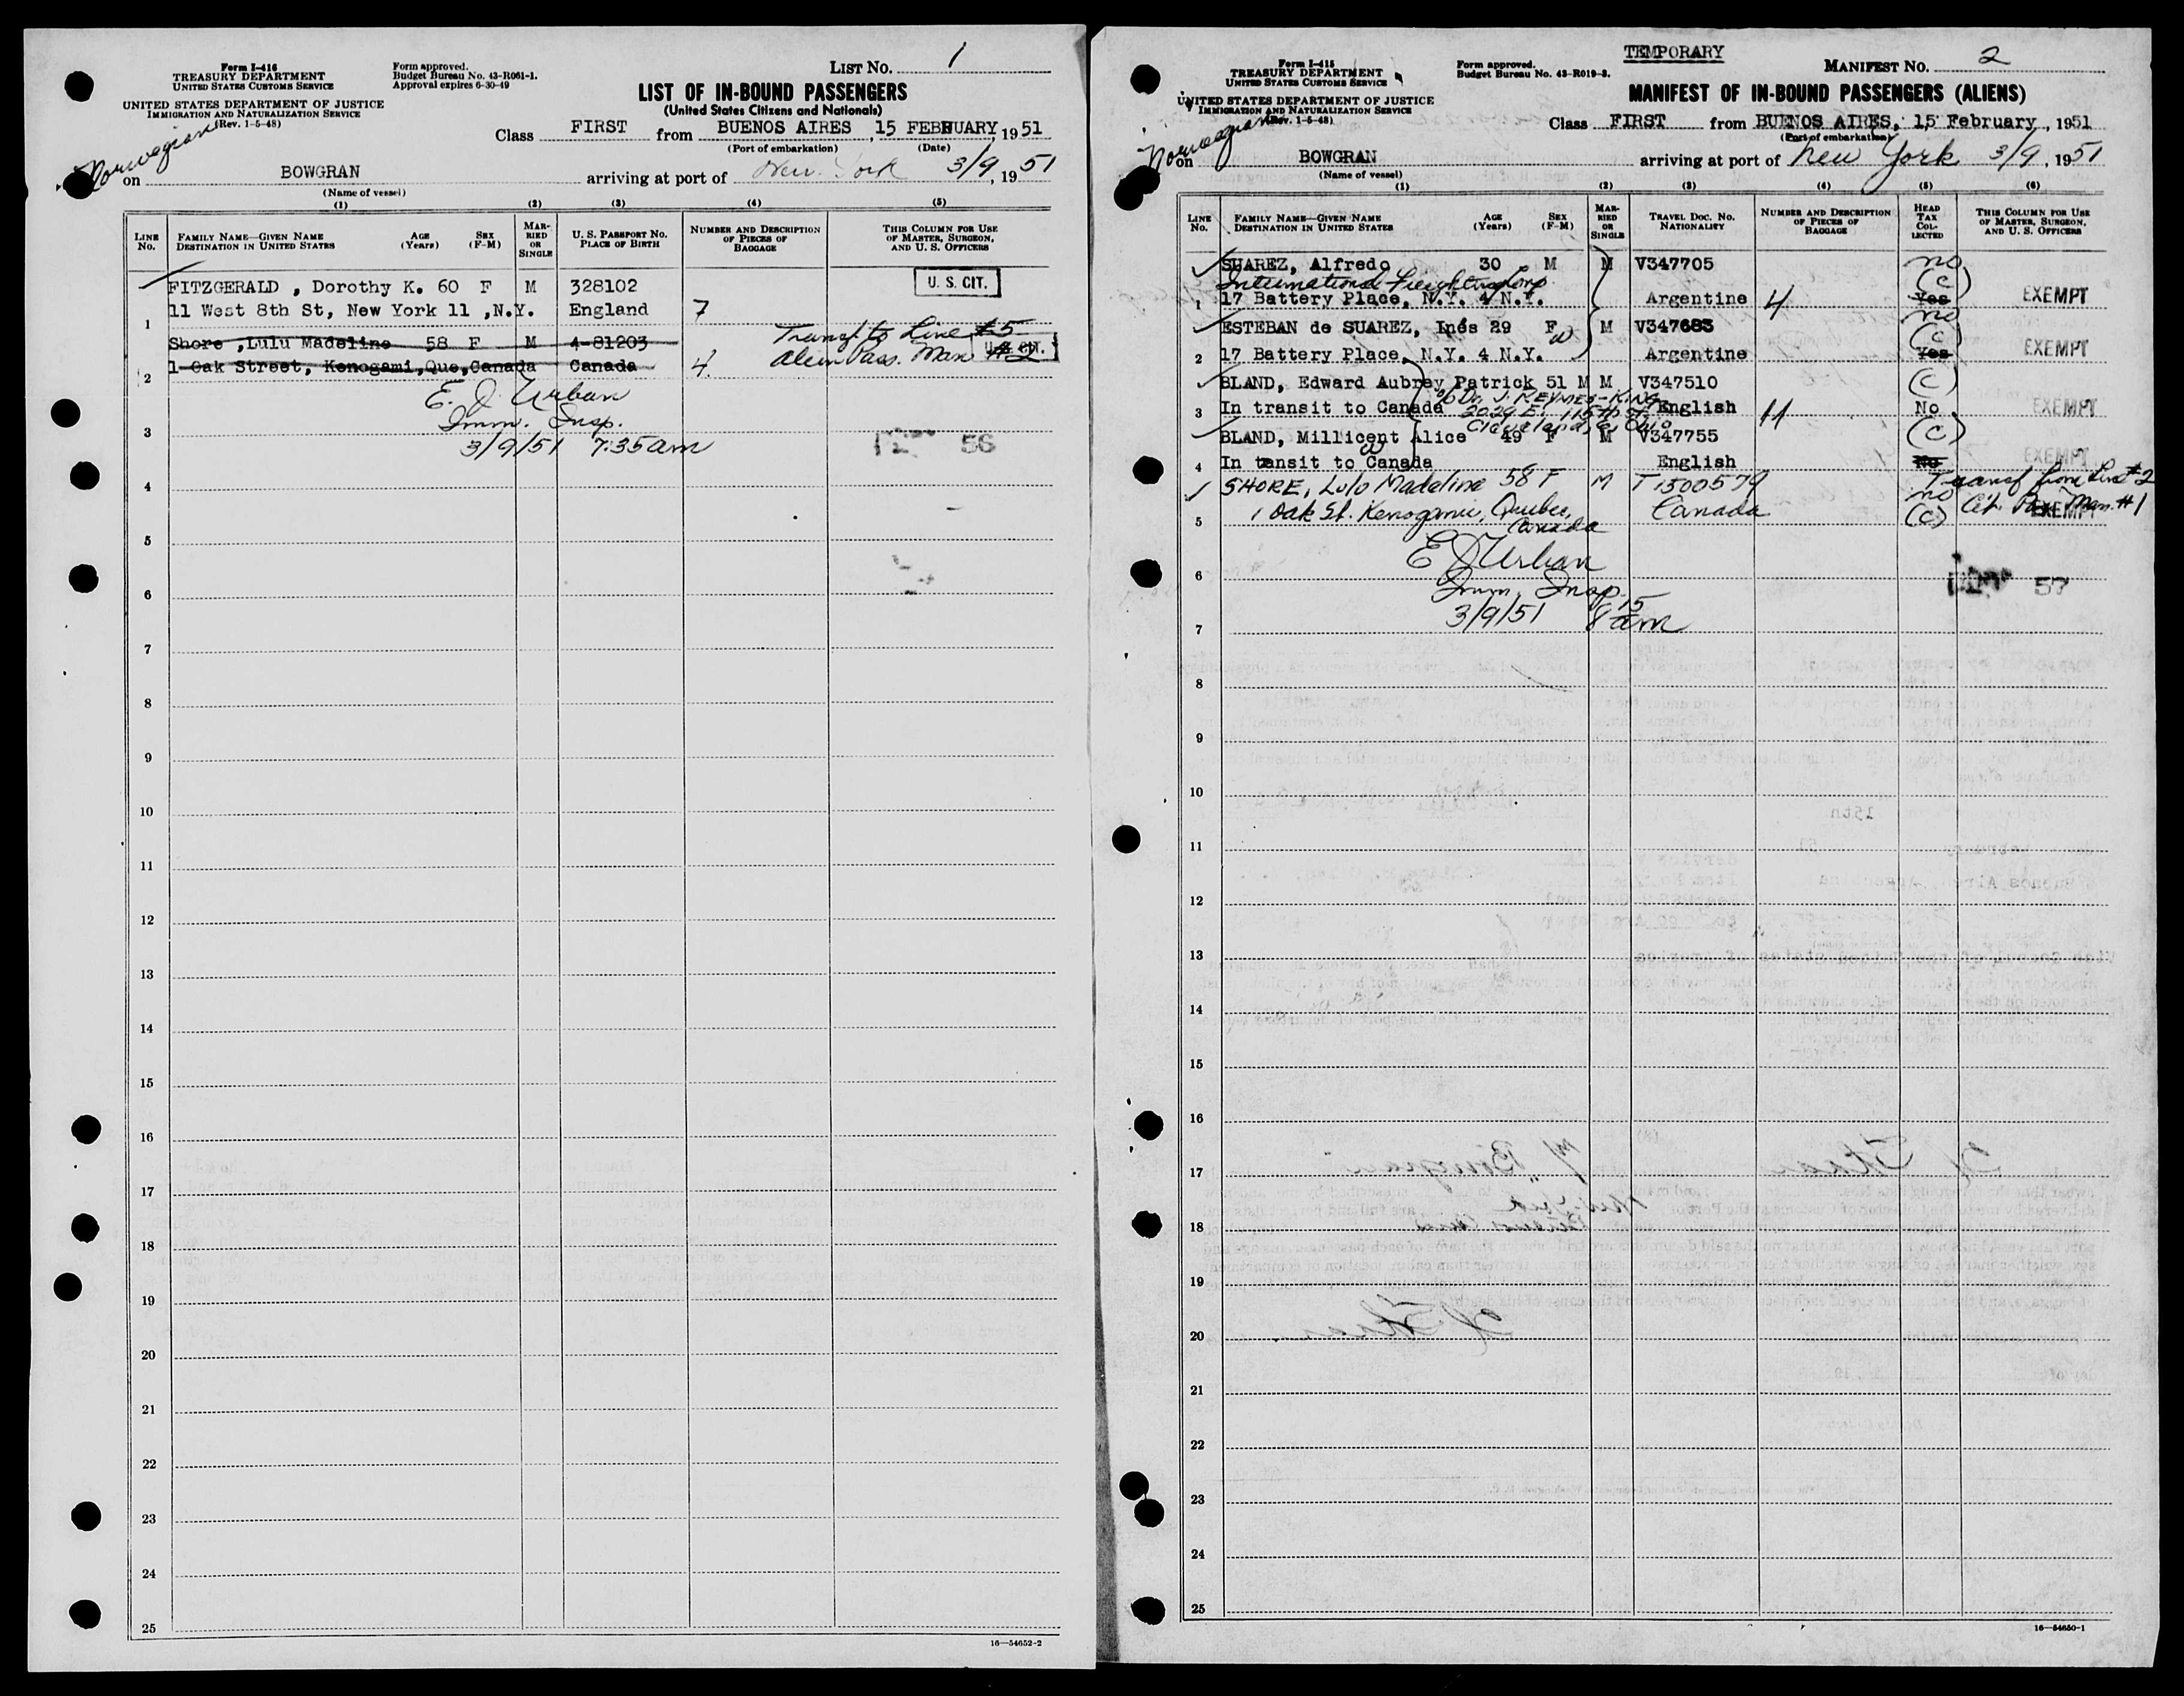 Form I-416
TREASURY DEPARTMENT
UNITED STATES CUSTOMS SERVICE
UNITED STATES DEPARTMENT OF JUSTICE
IMMIGRATION AND NATURALIZATION SERVICE
(Rev. 1-5-48)
Form approved.
Budget Bureau No. 43-R061-1.
Approval expires 6-30-49
LIST No. 1
LIST OF IN-BOUND PASSENGERS
(United States Citizens and Nationals)
Class FIRST from BUENOS AIRES, 15 FEBRUARY, 1951
(Port of embarkation) (Date)
Norwegian
on BOWGRAN arriving at port of New York 3/9, 1951
(Name of vessel)
(1) (2) (3) (4) (5)
LINE No. FAMILY NAME—GIVEN NAME DESTINATION IN UNITED STATES AGE (Years) SEX (F-M) MARRIED OR SINGLE U. S. PASSPORT No. PLACE OF BIRTH NUMBER AND DESCRIPTION OF PIECES OF BAGGAGE THIS COLUMN FOR USE OF MASTER, SURGEON, AND U. S. OFFICERS
FITZGERALD , Dorothy K. 60 F M 328102 U. S. CIT.
1 11 West 8th St, New York 11 ,N.Y. England 7
Shore ,Lulu Madeline 58 F M 4-81203 Transf to Line #5 U. S. CIT.
2 1 Oak Street, Kenogami,Que,Canada Canada 4 Alien Pass. Man #2
E. J. Urban
3 Imm. Insp. 56
3/9/51 7:35am
4
5
6
7
8
9
10
11
12
13
14
15
16
17
18
19
20
21
22
23
24
25
16—54652-2
TEMPORARY
Form I-415
TREASURY DEPARTMENT
UNITED STATES CUSTOMS SERVICE
UNITED STATES DEPARTMENT OF JUSTICE
IMMIGRATION AND NATURALIZATION SERVICE
(Rev. 1-5-48)
Form approved.
Budget Bureau No. 43-R019-3.
MANIFEST No. 2
MANIFEST OF IN-BOUND PASSENGERS (ALIENS)
Class FIRST from BUENOS AIRES, 15 February, 1951
(Port of embarkation)
Norwegian
on BOWGRAN arriving at port of New York 3/9, 1951
(Name of vessel)
(1) (2) (3) (4) (5) (6)
LINE No. FAMILY NAME—GIVEN NAME DESTINATION IN UNITED STATES AGE (Years) SEX (F-M) MARRIED OR SINGLE TRAVEL DOC. No. NATIONALITY NUMBER AND DESCRIPTION OF PIECES OF BAGGAGE HEAD TAX COLLECTED THIS COLUMN FOR USE OF MASTER, SURGEON, AND U. S. OFFICERS
SUAREZ, Alfredo 30 M M V347705 no
International Freighting Corp (C)
1 17 Battery Place, N.Y. 4 N.Y. Argentine 4 Yes EXEMPT
ESTEBAN de SUAREZ, Inés 29 F M V347683 no (C)
2 17 Battery Place, N.Y. 4 N.Y. Argentine Yes EXEMPT
BLAND, Edward Aubrey Patrick 51 M M V347510 (C)
c/o Dr. J. REYMES-KING
3 In transit to Canada 2029 E. 115th St English 11 No EXEMPT
Cleveland, 6, Ohio
BLAND, Millicent Alice 49 F M V347755 (C)
4 In tansit to Canada English No EXEMPT
SHORE, Lulu Madeline 58 F M T1500579 no Transf from Line #2
5 1 Oak St. Kenogami, Quebec, Canada Canada (C) Cit. Pass Man. #1 EXEMPT
E J Urban
6 Imm. Insp. 57
3/9/51 8 15 am
7
8
9
10
11
12
13
14
15
16
17
18
19
20
21
22
23
24
25
16—54650-1